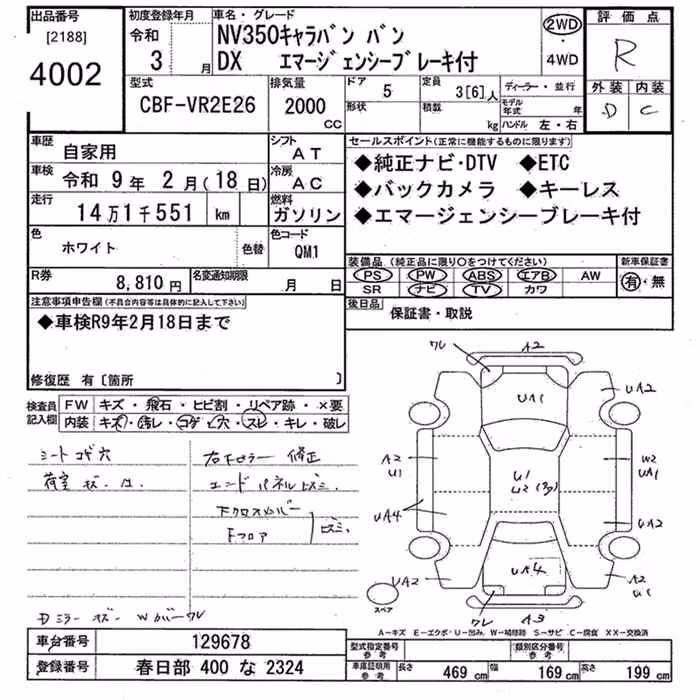 出品番号 [2188] 4002
初度登録年月 令和 3 月
車名・グレード
NV350キャラバン バン
DX エマージェンシーブレーキ付
2WD・4WD
評価点
R
外装 内装
D C
型式 CBF-VR2E26
排気量 2000 CC
ドア 5
定員 3[6]人
形状 積載 kg
ディーラー・並行
モデル年式 年
ハンドル 左・右
車歴 自家用
シフト AT
車検 令和 9年 2月(18日)
冷房 AC
走行 14万1千551 km
燃料 ガソリン
色 ホワイト 色替
色コード QM1
R券 8,810円
名変通知期限 月 日
セールスポイント(正常に機能するものに限ります)
◆純正ナビ・DTV ◆ETC
◆バックカメラ ◆キーレス
◆エマージェンシーブレーキ付
装備品(純正品に限り○をつけてください) 新車保証書
PS PW ABS エアB AW 有・無
SR ナビ TV カワ
後日品 保証書・取説
注意事項申告欄(不具合内容等は具体的に記入して下さい)
◆車検R9年2月18日まで
修復歴 有〔箇所 〕
検査員記入欄
FW キズ・飛石・ヒビ割・リペア跡・×要
内装 キズ・汚レ・コゲ・穴・スレ・キレ・破レ
シートコゲ穴
荷室キズ・凹
右Fピラー 修正
エンドパネルヒズミ
FクロスメンバーFフロア ヒズミ
Dミラーキズ Wガバーワレ
ワレ A2
UA1 UA2
A2 U1
U1 U2
W2 UA1
UA4 UA2
UA2 UA4 A2 U1
スペア ワレ A3
A-キズ E-エクボ・U-凹み W-補修跡 S-サビ C-腐食 XX-交換済
車台番号 129678
登録番号 春日部 400 な 2324
型式指定番号 参考
類別区分番号 参考
車庫証明用 参考 長さ 469 cm 幅 169 cm 高さ 199 cm